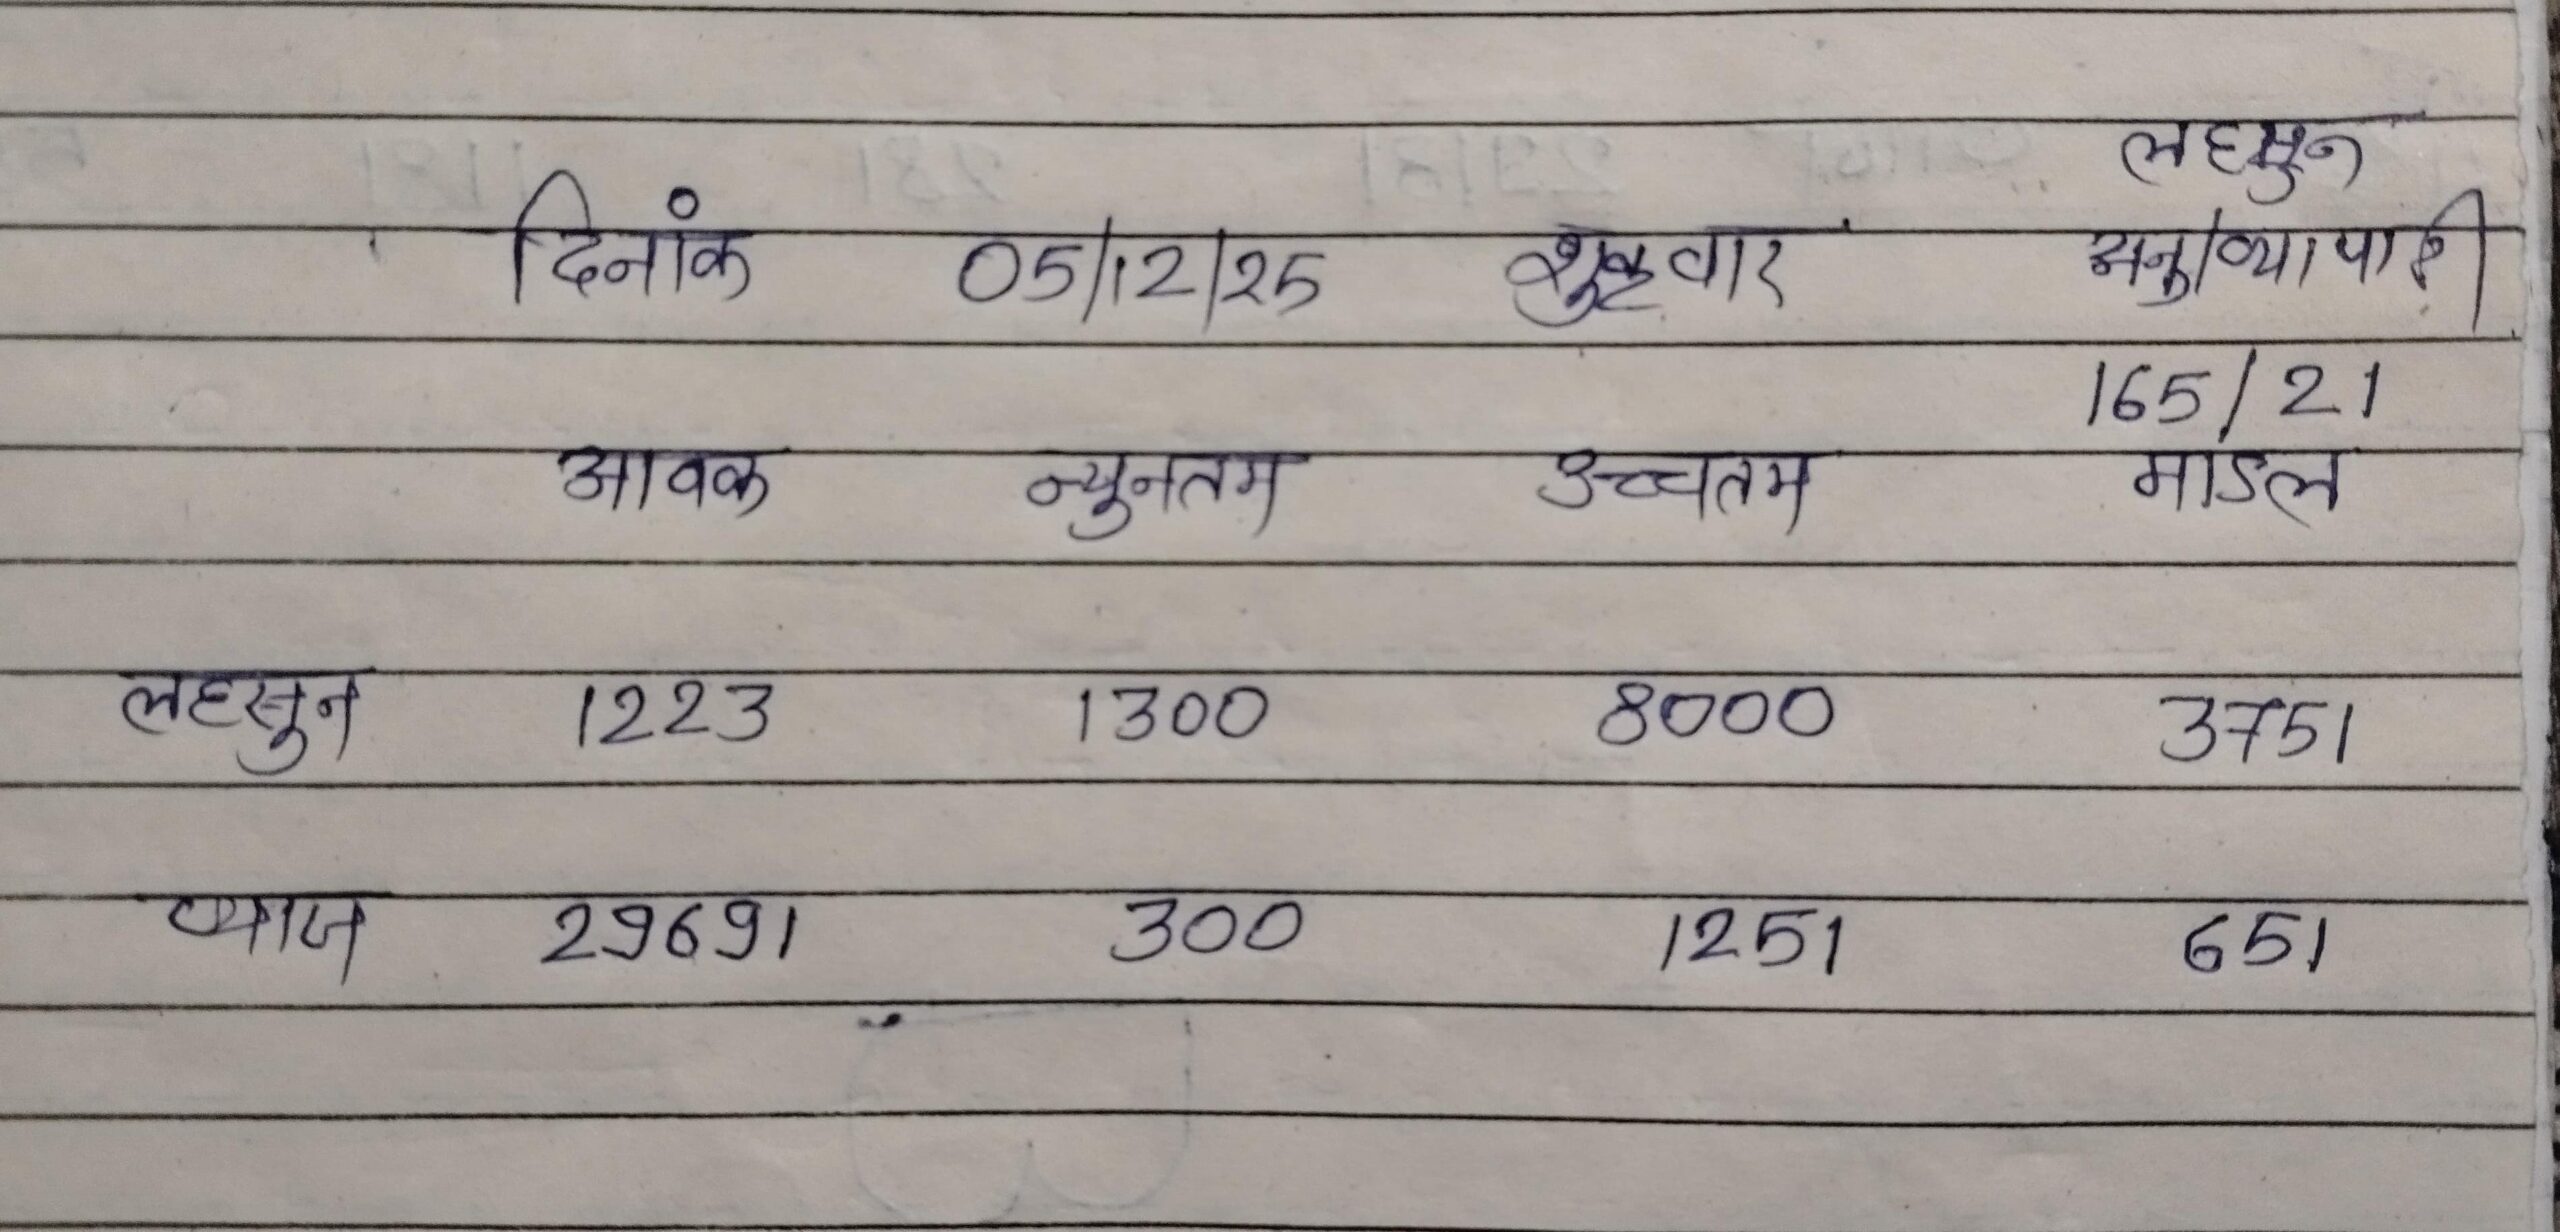 लहसुन
दिनांक 05/12/25 शुक्रवार अनु/व्यापारी
165/21
आवक न्युनतम उच्चतम माडल
लहसुन 1223 1300 8000 3751
प्याज 29691 300 1251 651